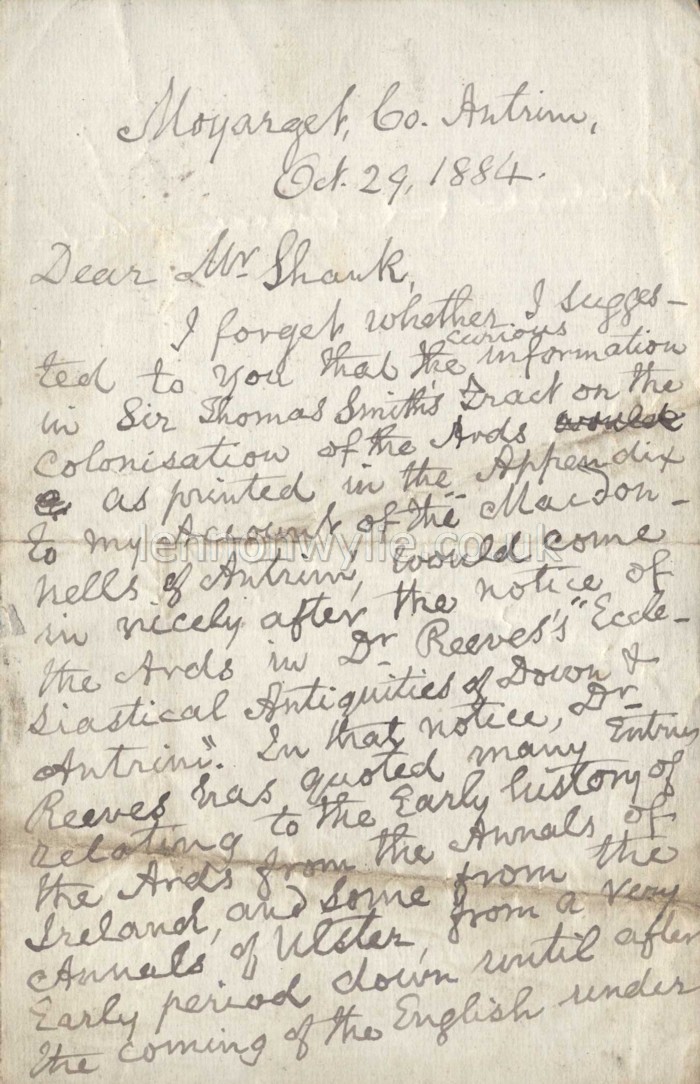 Moyarget, Co. Antrim,
Oct. 29, 1884.
Dear Mr Shank,
I forget whether I sugges-
ted to you that the curious information
in Sir Thomas Smith's Tract on the
Colonisation of the Ards would
as printed in the Appendix
to my "Account of the Macdon-
nells of Antrim", would come
in nicely after the notice of
the Ards in Dr Reeves's "Eccle-
siastical Antiquities of Down &
Antrim". In that notice, Dr
Reeves has quoted many Entries
relating to the Early history of
the Ards from the Annals of
Ireland, and some from the
Annals of Ulster, from a very
Early period down until after
the coming of the English under
lennonwylie.co.uk